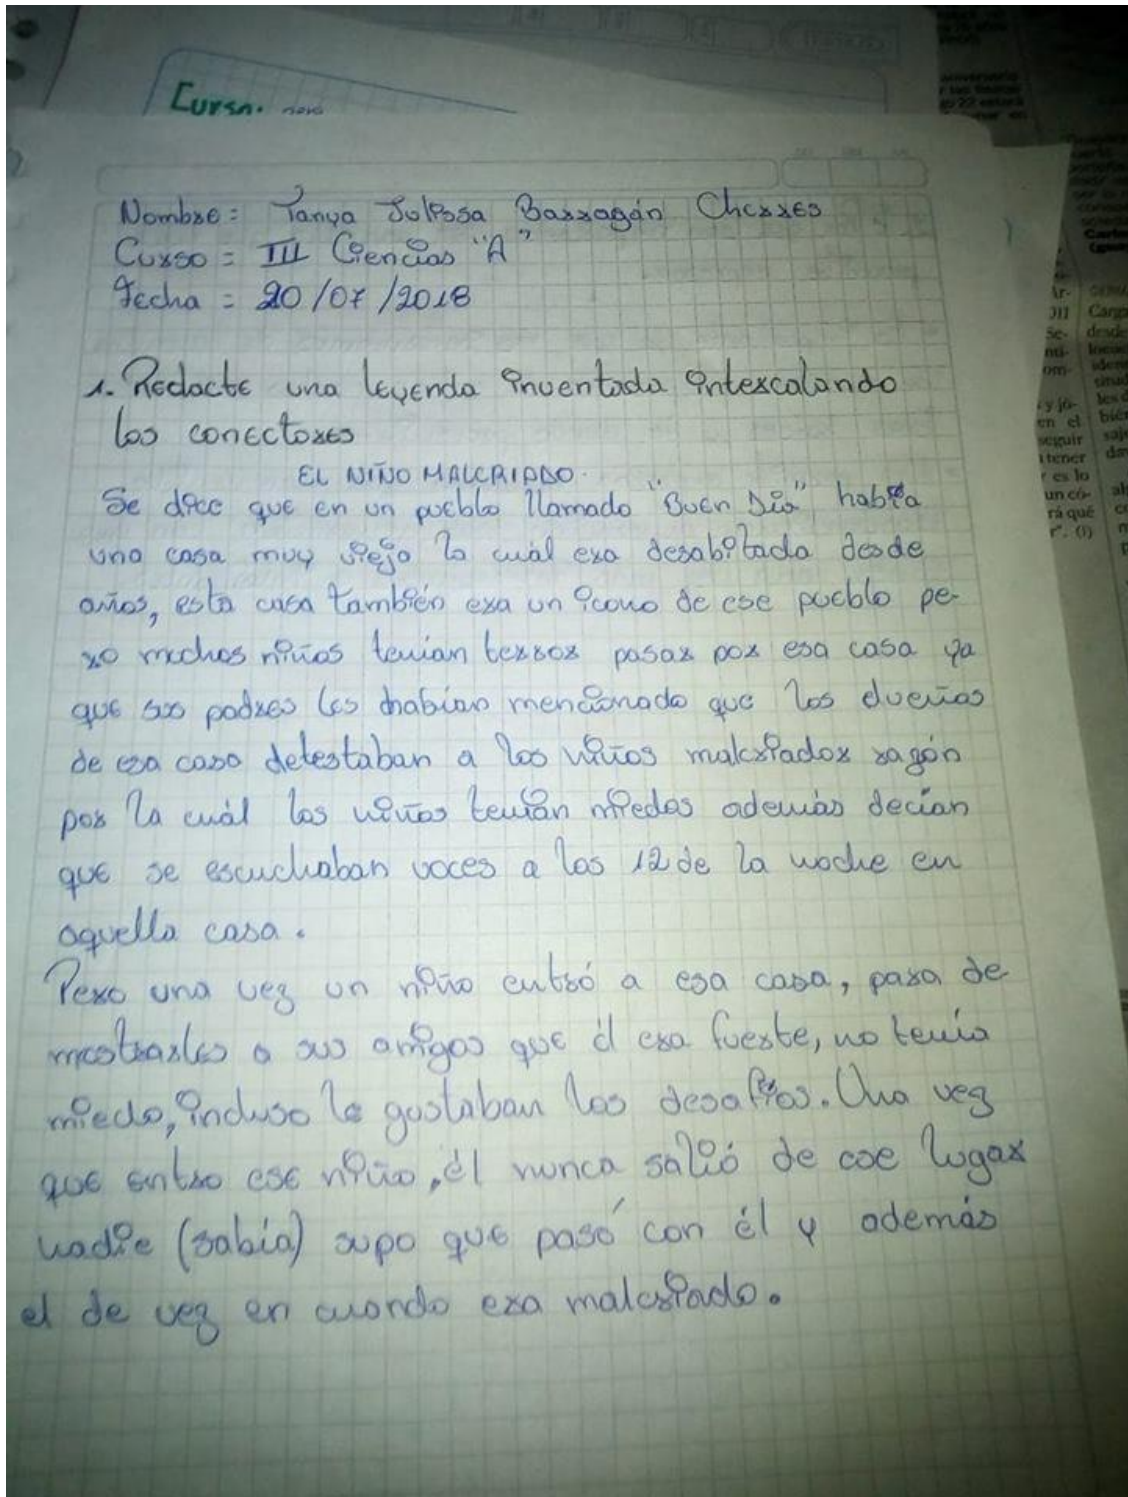 Curso.
Nombre: Tanya Julissa Barragán Cherres
Curso = III Ciencias "A"
Fecha = 20/07/2018
1. Redacte una leyenda inventada intercalando
los conectores
EL NIÑO MALCRIADO.
Se dice que en un pueblo llamado "Buen Día" había
una casa muy vieja la cuál era desabitada desde
años, esta casa también era un icono de ese pueblo pe-
ro muchos niños tenian terror pasar por esa casa ya
que sus padres les habían mencionado que los dueños
de esa casa detestaban a los niños malcriador razón
por la cuál los niños tenían miedos además decían
que se escuchaban voces a las 12 de la noche en
aquella casa.
Pero una vez un niño entró a esa casa, para de
mostrarles a sus amigos que él era fuerte, no tenía
miedo, incluso le gustaban los desafíos. Una vez
que entro ese niño, él nunca salió de ese lugar
nadie (sabía) supo que pasó con él y además
el de vez en cuando era malcriado.